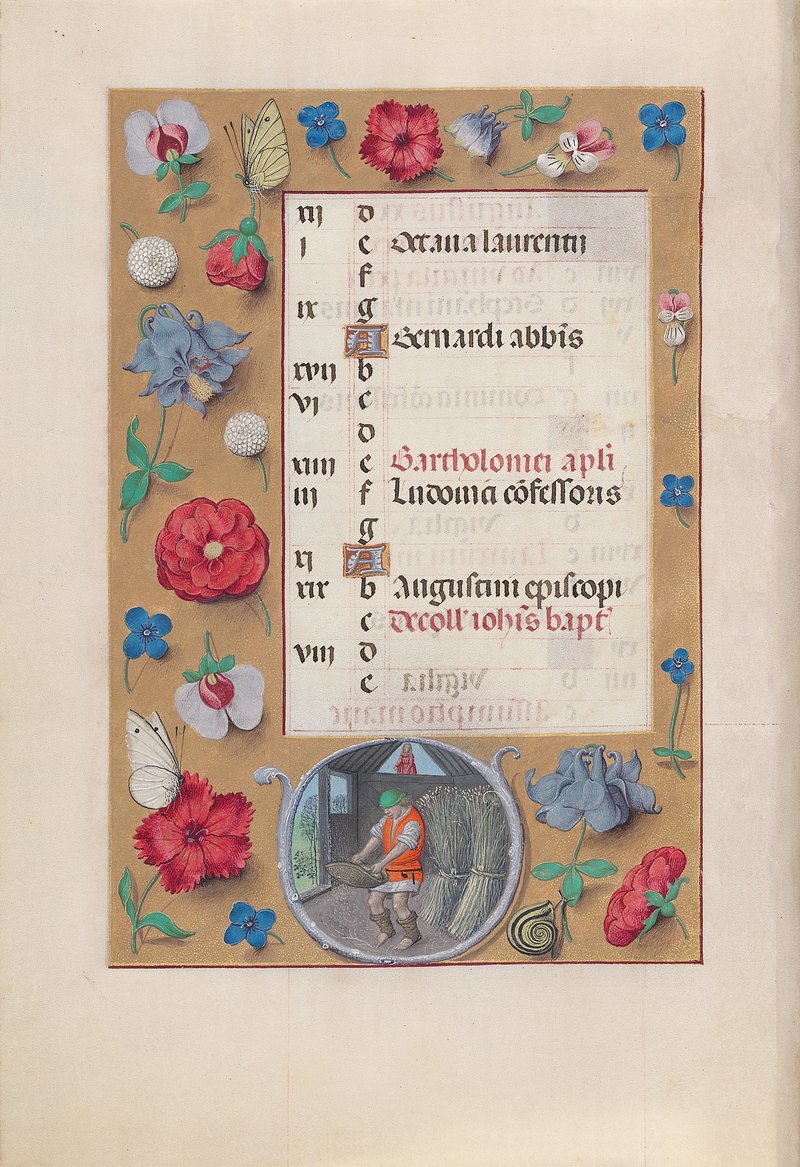 xij d
j e Octaua laurentij
f
ix g
A Bernardi abbi̅s
xvij b
vj c
d
xiiij e Bartholomei apl̅i
iij f Ludouici co̅fessoris
g
xj A
xix b Augustini episcopi
c decoll' ioh̅is bapt
viij d
e